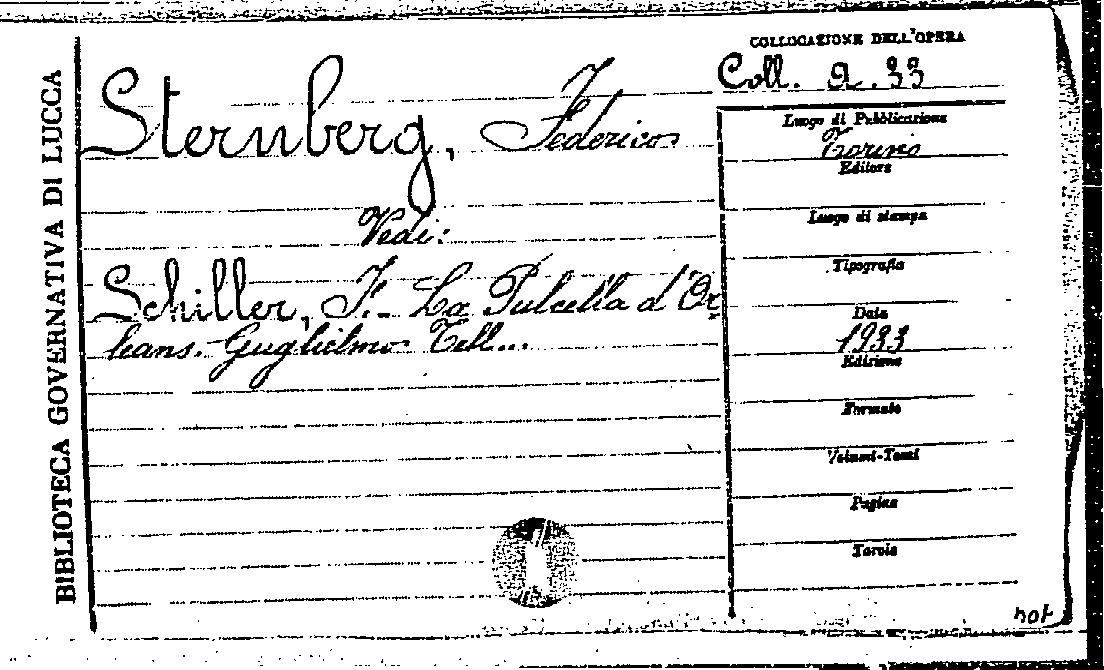 BIBLIOTECA GOVERNATIVA DI LUCCA
Sternberg, Federico
Vedi:
Schiller, F. - La Pulcella d'Or
leans. Guglielmo Tell...
COLLOCAZIONE DELL'OPERA
Coll. a. 33
Luogo di Pubblicazione
Torino
Editore
Luogo di stampa
Tipografia
Data
1933
Edizione
Formato
Volumi-Tomi
Pagine
Tavole